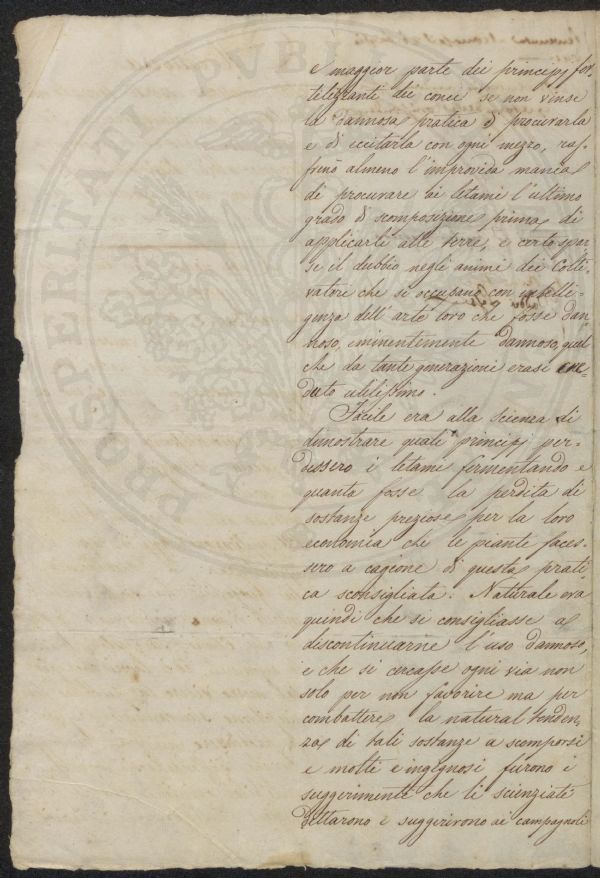 e maggior parte dei principj fer-
tilizzanti dei conci se non vinse
la dannosa pratica di procurarla
e di eccitarla con ogni mezzo, raf-
frenò almeno l'improvida mania
di procurare ai letami l'ultimo
grado di scomposizione prima di
applicarli alle terre, e certo spar-
se il dubbio negli animi dei Colti-
vatori che si occupano con intelli-
genza dell'arte loro che fosse dan
noso, eminentemente dannoso, quel
che da tante generazioni erasi cre-
duto utilissimo.
Facile era alla scienza di
dimostrare quali principj per-
dessero i letami fermentando e
quanta fosse la perdita di
sostanze preziose per la loro
economia che le piante faces-
sero a cagione di questa prati
ca sconsigliata. Naturale era
quindi che si consigliasse a
discontinuarne l'uso dannoso,
e che si cercasse ogni via non
solo per non favorire ma per
combattere la natural tenden-
za di tali sostanze a scomporsi
e molti e ingegnosi furono i
suggerimenti che li scienziati
dettarono e suggerirono ai campagnoli
PROSPERITATI PUBLI